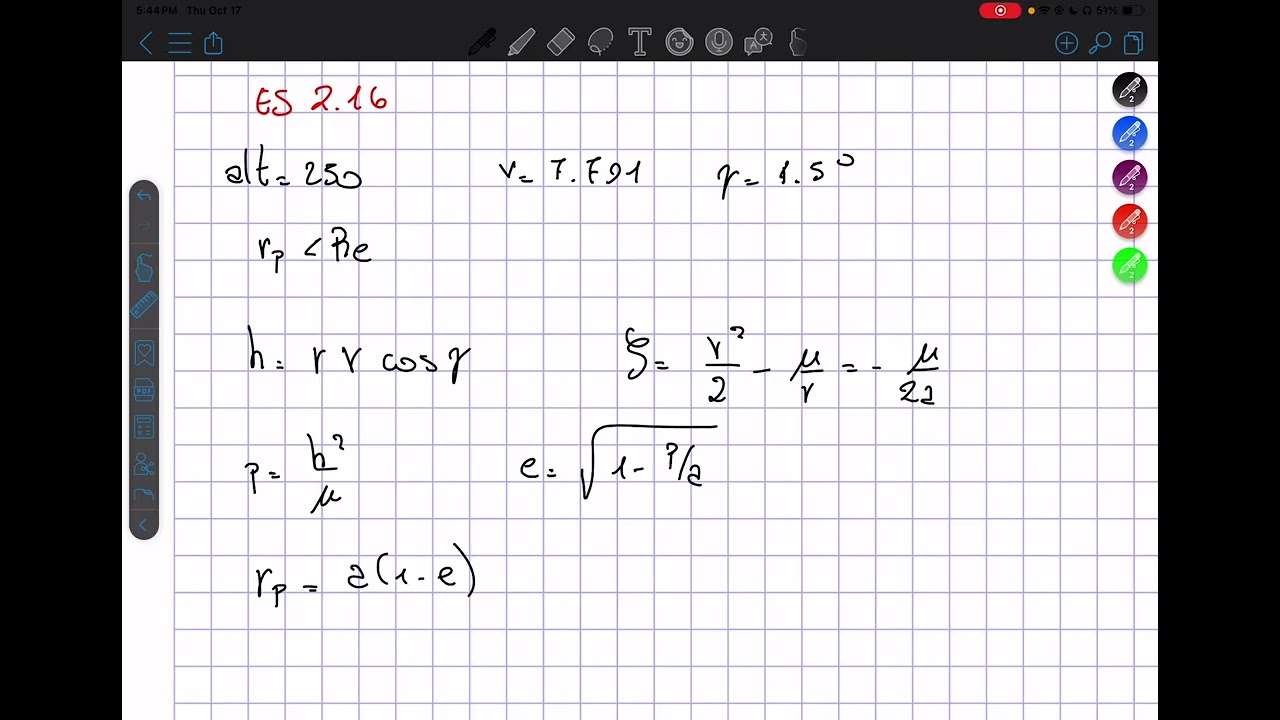 5:44 PM Thu Oct 17 51%
ES 2.16
alt = 250 v = 7.791 γ = 1.5°
rp < Re
h = r v cos γ ξ = v²/2 - μ/r = - μ/2a
p = h²/μ e = √(1 - p/a)
rp = a(1 - e)